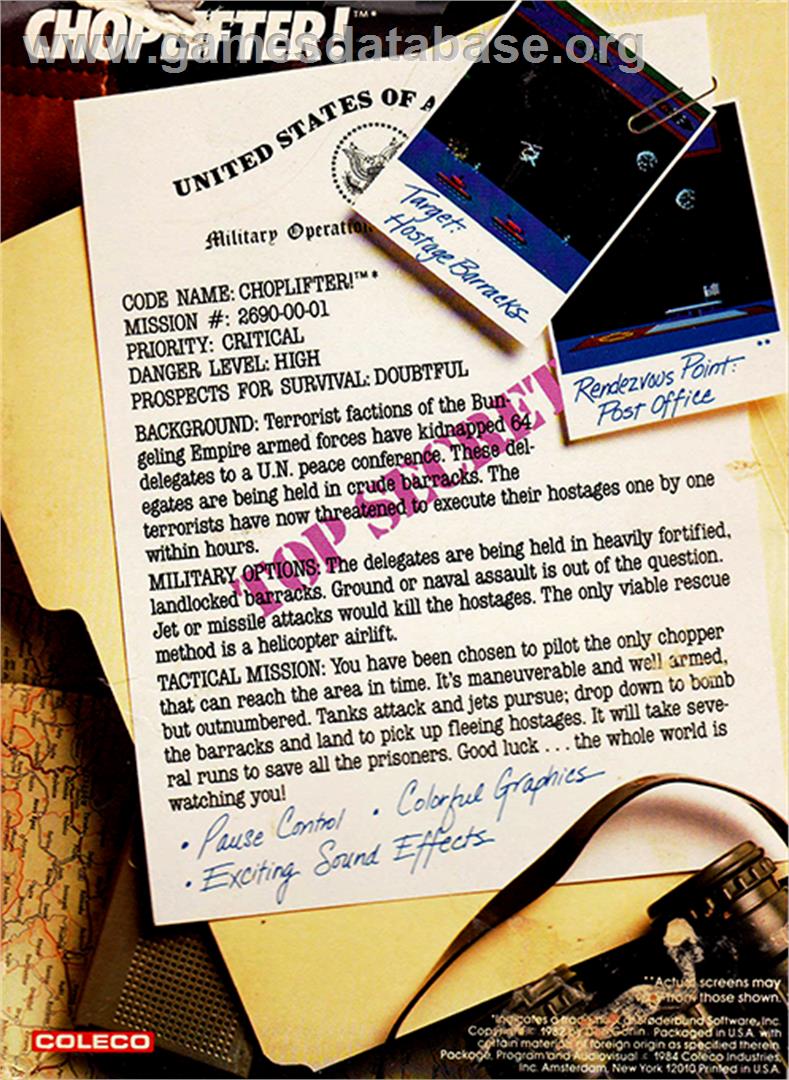 CHOPLIFTER!™*
www.gamesdatabase.org
UNITED STATES OF A
Military Operation
Target:
Hostage Barracks
Rendezvous Point:
Post Office
**
CODE NAME: CHOPLIFTER!™*
MISSION #: 2690-00-01
PRIORITY: CRITICAL
DANGER LEVEL: HIGH
PROSPECTS FOR SURVIVAL: DOUBTFUL
BACKGROUND: Terrorist factions of the Bun-
geling Empire armed forces have kidnapped 64
delegates to a U.N. peace conference. These del-
egates are being held in crude barracks. The
terrorists have now threatened to execute their hostages one by one
within hours.
TOP SECRET
MILITARY OPTIONS: The delegates are being held in heavily fortified,
landlocked barracks. Ground or naval assault is out of the question.
Jet or missile attacks would kill the hostages. The only viable rescue
method is a helicopter airlift.
TACTICAL MISSION: You have been chosen to pilot the only chopper
that can reach the area in time. It's maneuverable and well armed,
but outnumbered. Tanks attack and jets pursue; drop down to bomb
the barracks and land to pick up fleeing hostages. It will take seve-
ral runs to save all the prisoners. Good luck . . . the whole world is
watching you!
• Pause Control • Colorful Graphics
• Exciting Sound Effects
**Actual screens may
vary from those shown.
*Indicates a trademark of Brøderbund Software, Inc.
Copyright © 1982 by Dan Gorlin. Packaged in U.S.A. with
certain materials of foreign origin as specified therein.
Package, Program and Audiovisual © 1984 Coleco Industries,
Inc. Amsterdam, New York 12010 Printed in U.S.A.
COLECO